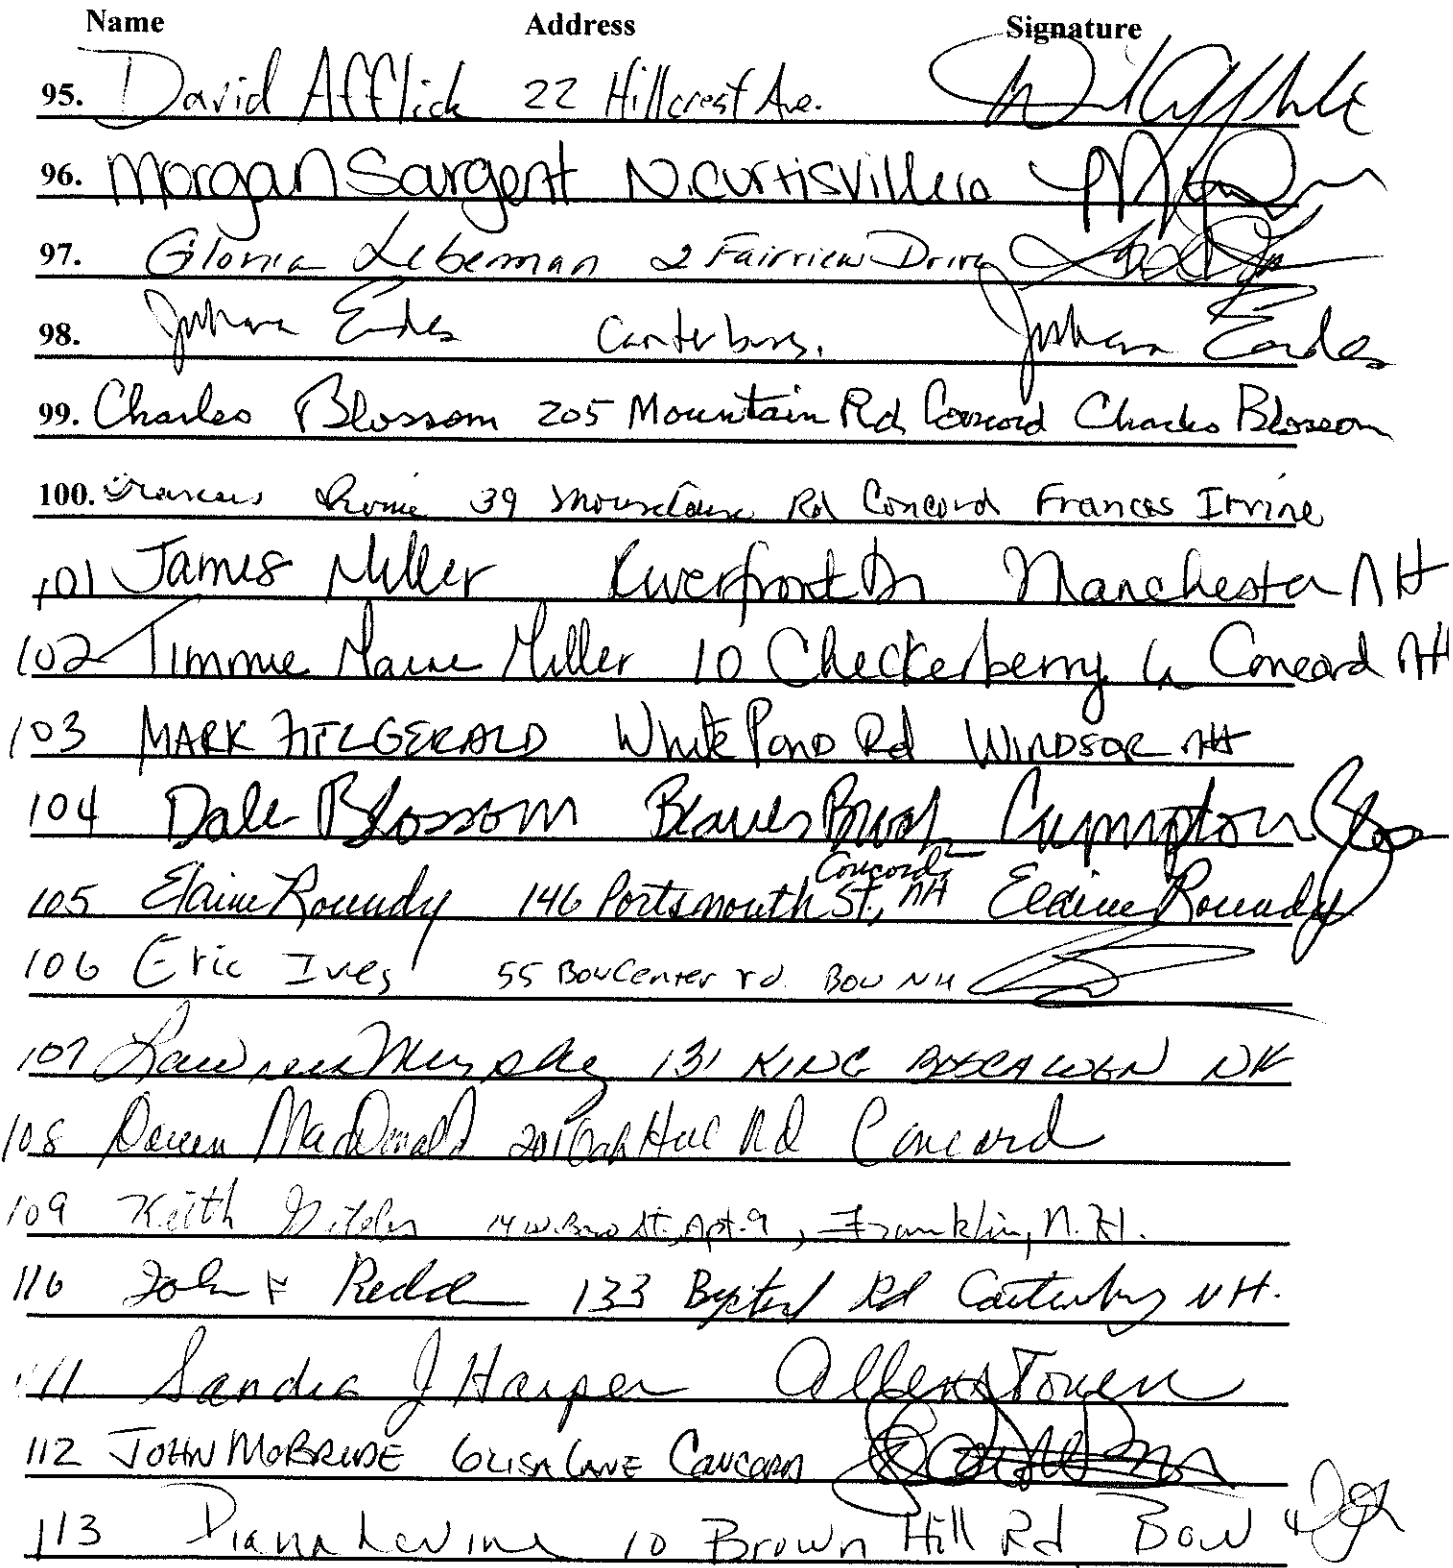 Name Address Signature
95. David Afflick 22 Hillcrest Ave.
96. Morgan Sargent N. Curtisville
97. Gloria Leberman 2 Fairview Drive
98. Eades Canterbury. Eades
99. Charles Blossom 205 Mountain Rd Concord Charles Blossom
100. Frances Irvine 39 Mountain Rd Concord Frances Irvine
101 James Miller Riverfront Dr Manchester NH
102 Timmie Maine Miller 10 Checkerberry Ln Concord NH
103 MARK FITZGERALD White Pond Rd WINDSOR NH
104 Dale Blossom Campton
105 Elaine Roundy 146 Portsmouth St, Concord NH Elaine Roundy
106 Eric Ives 55 Bow Center rd. BOW NH
107 Murphy 131 KING BOSCAWEN NH
108 MacDonald 201 Oak Hill Rd Concord
109 Keith 14 W. Bow St, Apt. 9, Franklin, N.H.
110 John F 133 Rd Canterbury NH.
111 Sandra J Harper Allenstown
112 JOHN MCBRIDE LANE CONCORD
113 Diana Levine 10 Brown Hill Rd Bow